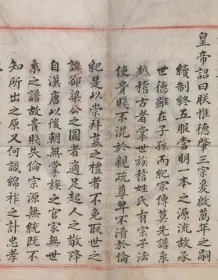 皇帝詔曰朕惟德肇三宗衰啟萬年之嗣
續制終五服當明一本之源流故承
世德雖在子孫而紀宗傳莫先譜系
越稽古者掌世族稽姓氏有宗子法
使貴賤不混於親疏尊卑不淆於倫
紀是以崇拜歲之禮者不免取世之
譏卻梁公之圖者適足起人之敬降
自漢唐以後朝無掌族之官家無世
系之譜故貴賤失倫宗源無統既不
知所出之原人何識綿祚之計忠孝